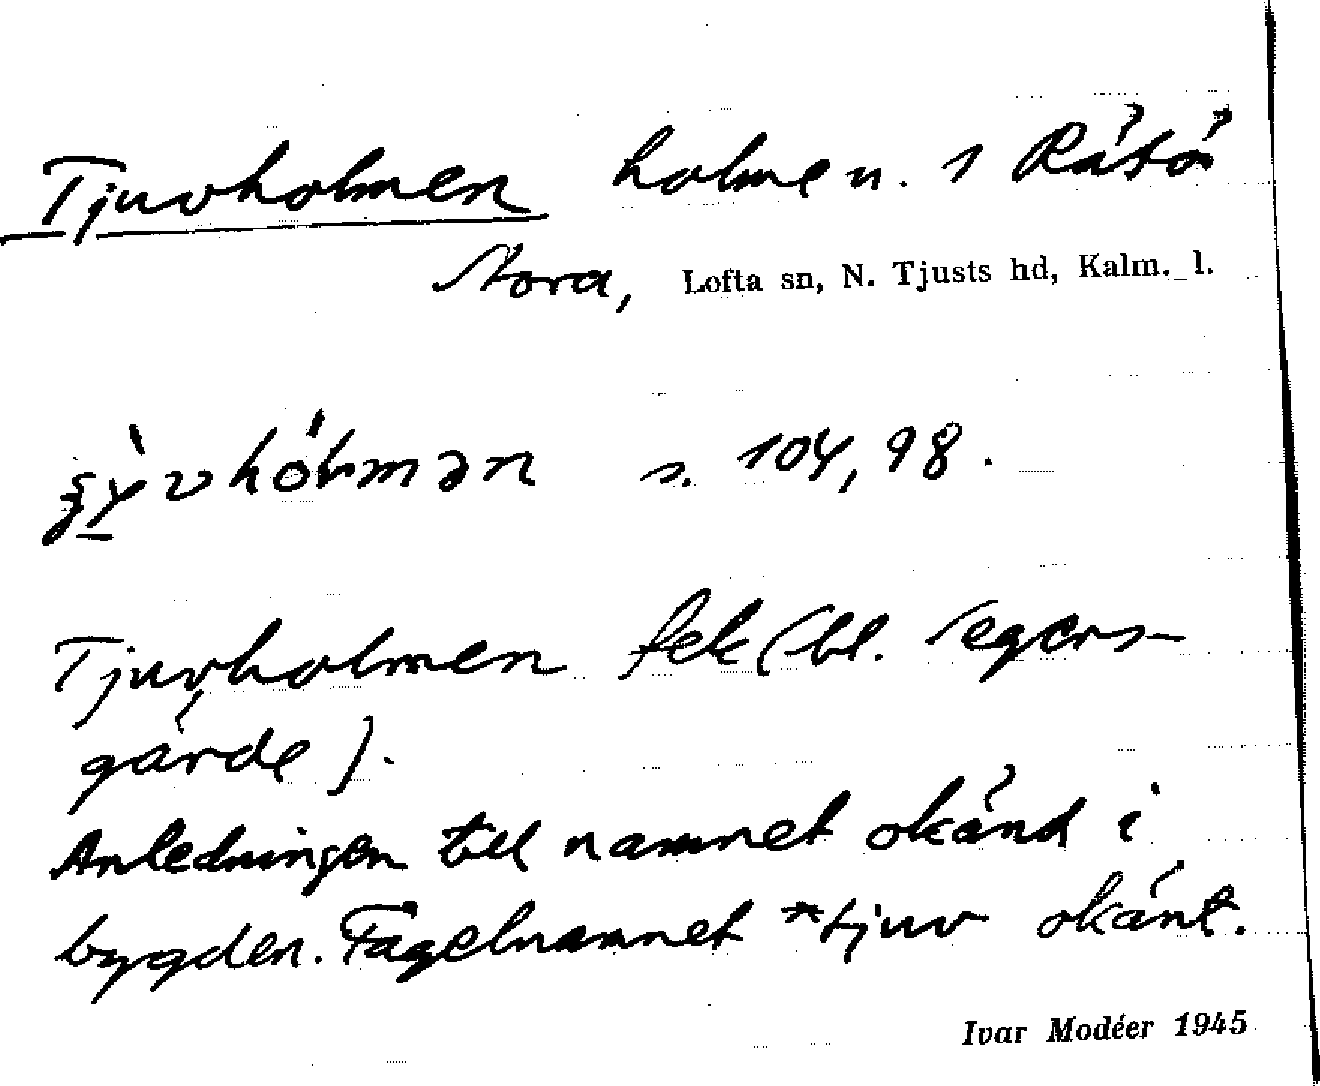 Tjuvholmen holme n. i Rätö
Stora, Lofta sn, N. Tjusts hd, Kalm. l.
s. 104, 98.
Tjuvholmen (bl. Segers-
gärde).
Anledningen till namnet okänd i
bygden. Fågelnamnet *tjuv okänt.
Ivar Modéer 1945